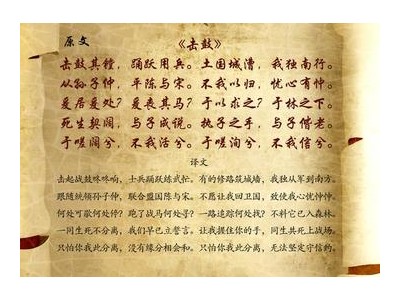 原文
《击鼓》
击鼓其镗，踊跃用兵。土国城漕，我独南行。
从孙子仲，平陈与宋。不我以归，忧心有忡。
爰居爰处？爰丧其马？于以求之？于林之下。
死生契阔，与子成说。执子之手，与子偕老。
于嗟阔兮，不我活兮。于嗟洵兮，不我信兮。
译文
击起战鼓咚咚响，士兵踊跃练武忙。有的修路筑城墙，我独从军到南方。
跟随统领孙子仲，联合盟国陈与宋。不愿让我回卫国，致使我心忧忡忡。
何处可歇何处停？跑了战马何处寻？一路追踪何处找？不料它已入森林。
一同生死不分离，我们早已立誓言。让我握住你的手，同生共死上战场。
只怕你我此分离，没有缘分相会和。只怕你我此分离，无法坚定守信约。